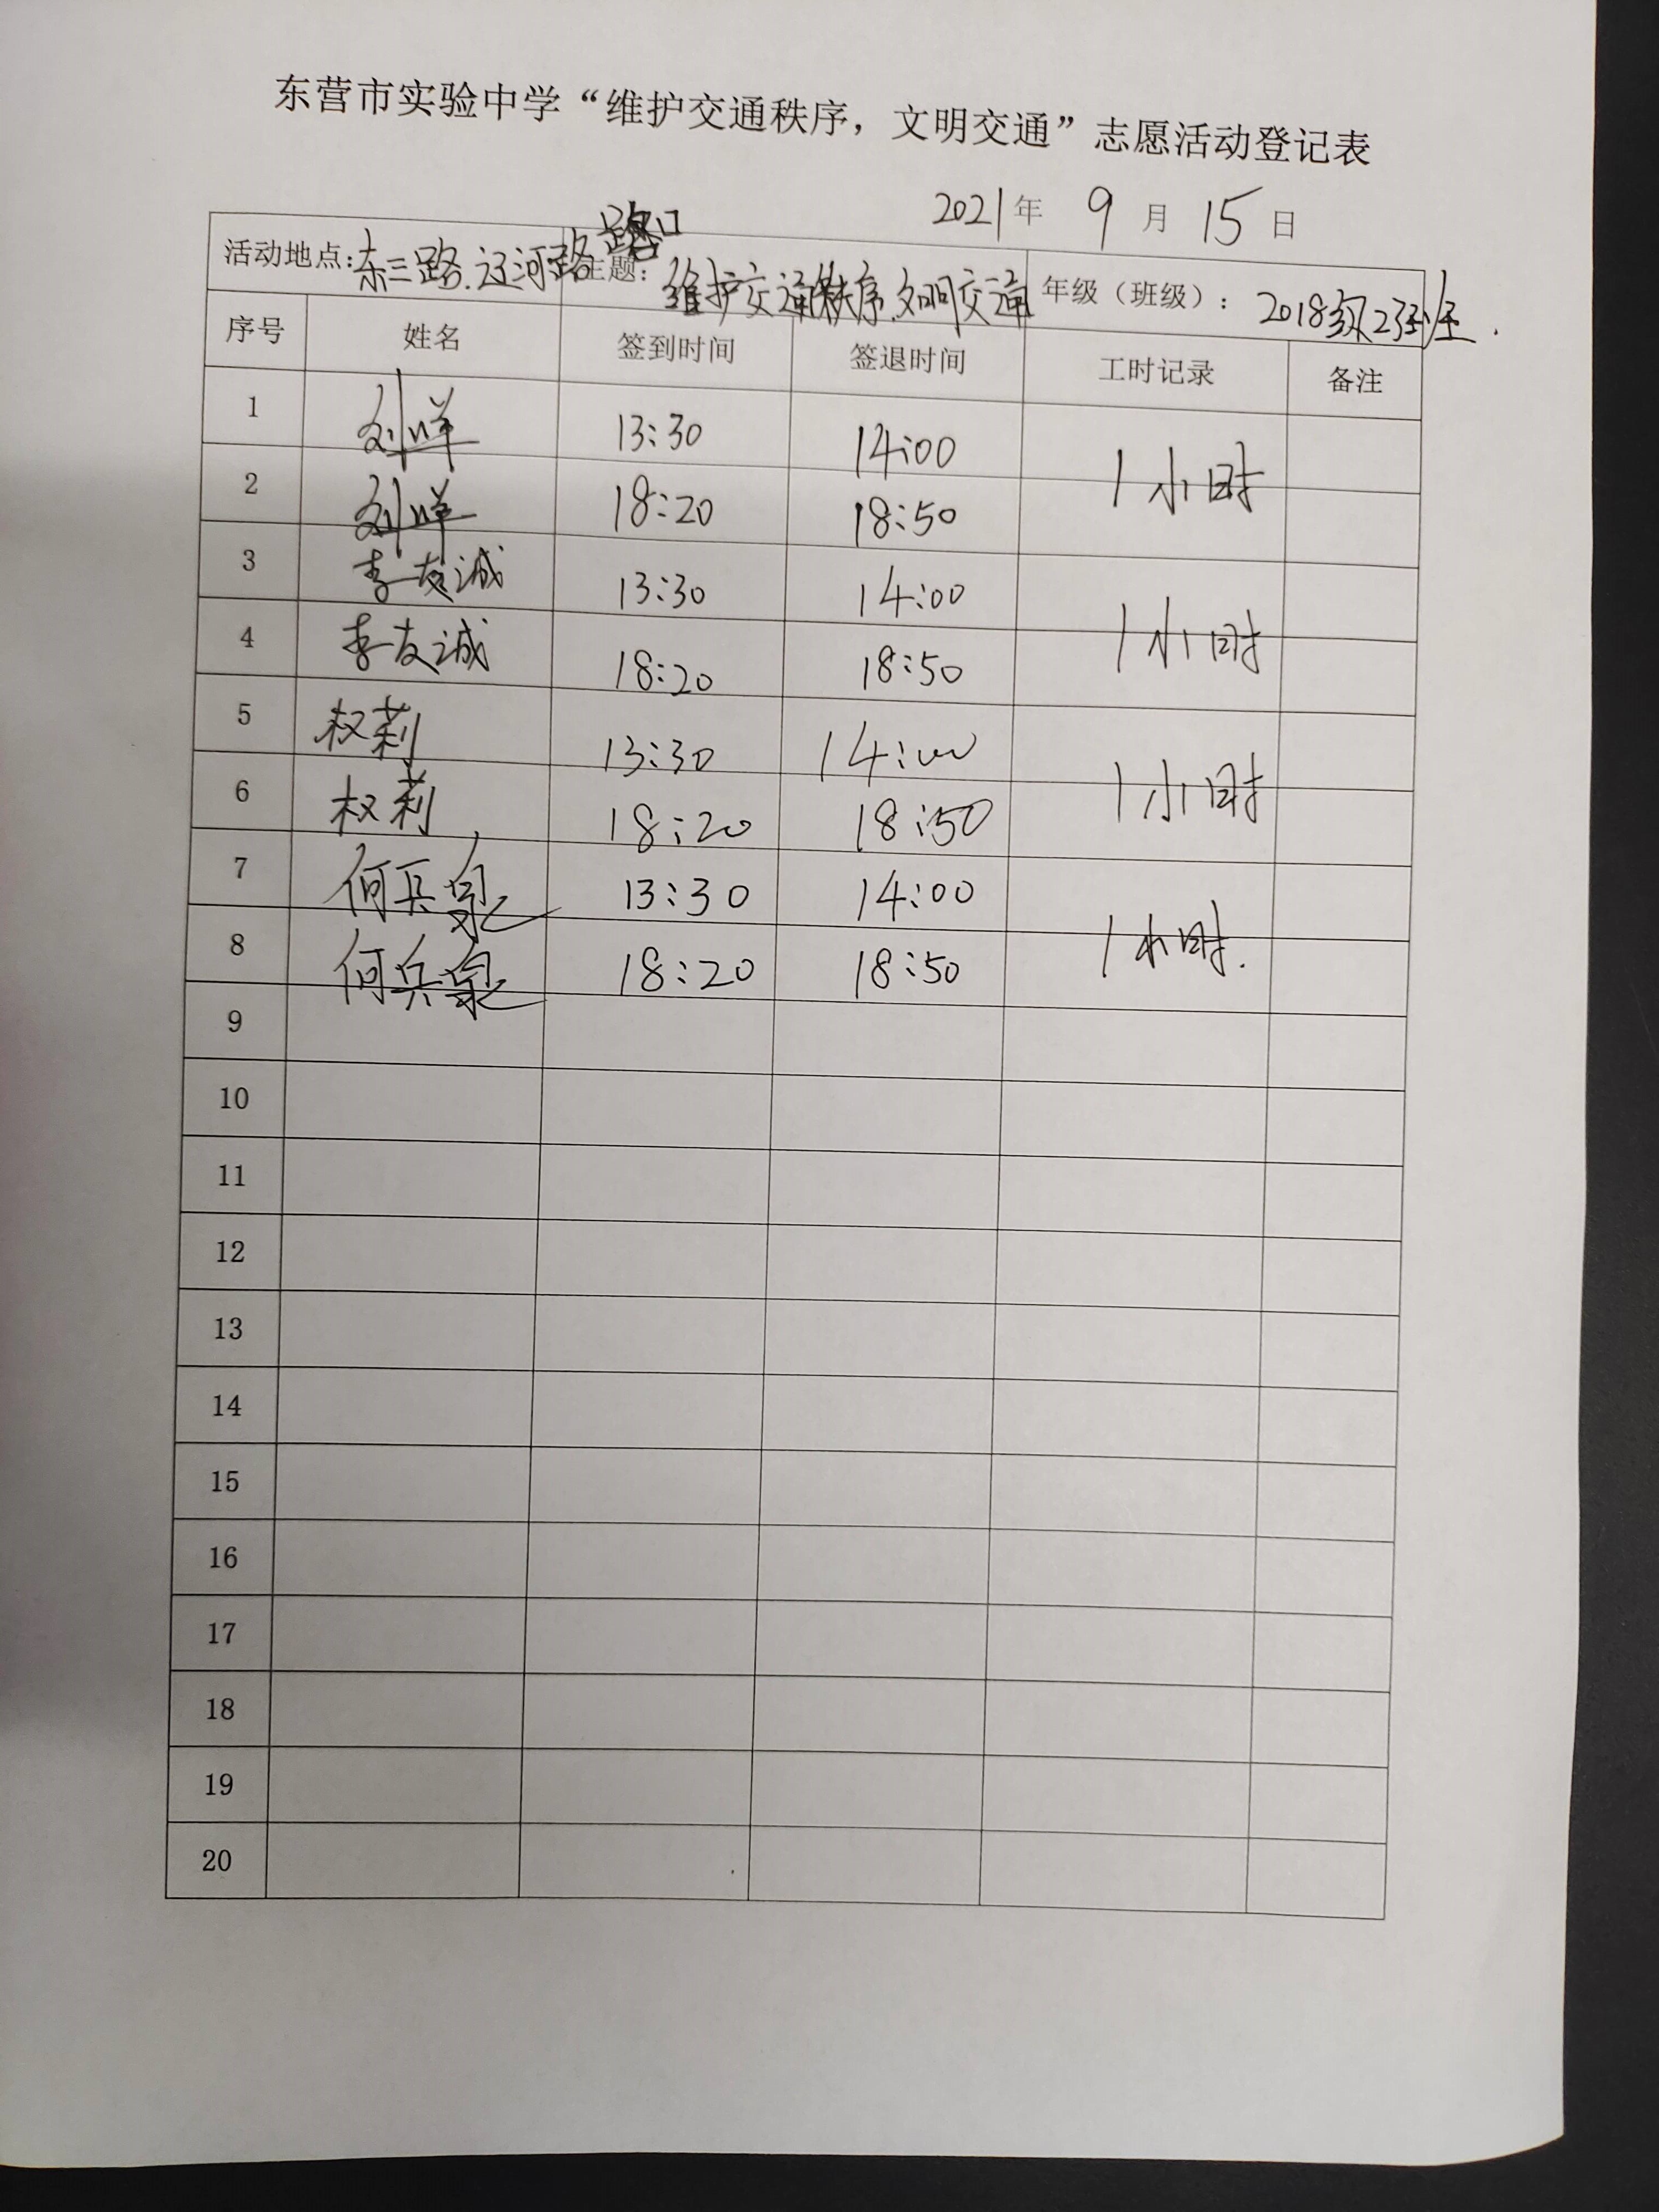 东营市实验中学“维护交通秩序，文明交通”志愿活动登记表
2021年 9月 15日
活动地点：东三路.辽河路路口 主题：维护交通秩序.文明交通 年级（班级）：2018级2班.
序号 姓名 签到时间 签退时间 工时记录 备注
1 13:30 14:00 1小时
2 18:20 18:50
3 李友诚 13:30 14:00 1小时
4 李友诚 18:20 18:50
5 权莉 13:30 14:00 1小时
6 权莉 18:20 18:50
7 何兵泉 13:30 14:00 1小时.
8 何兵泉 18:20 18:50
9
10
11
12
13
14
15
16
17
18
19
20